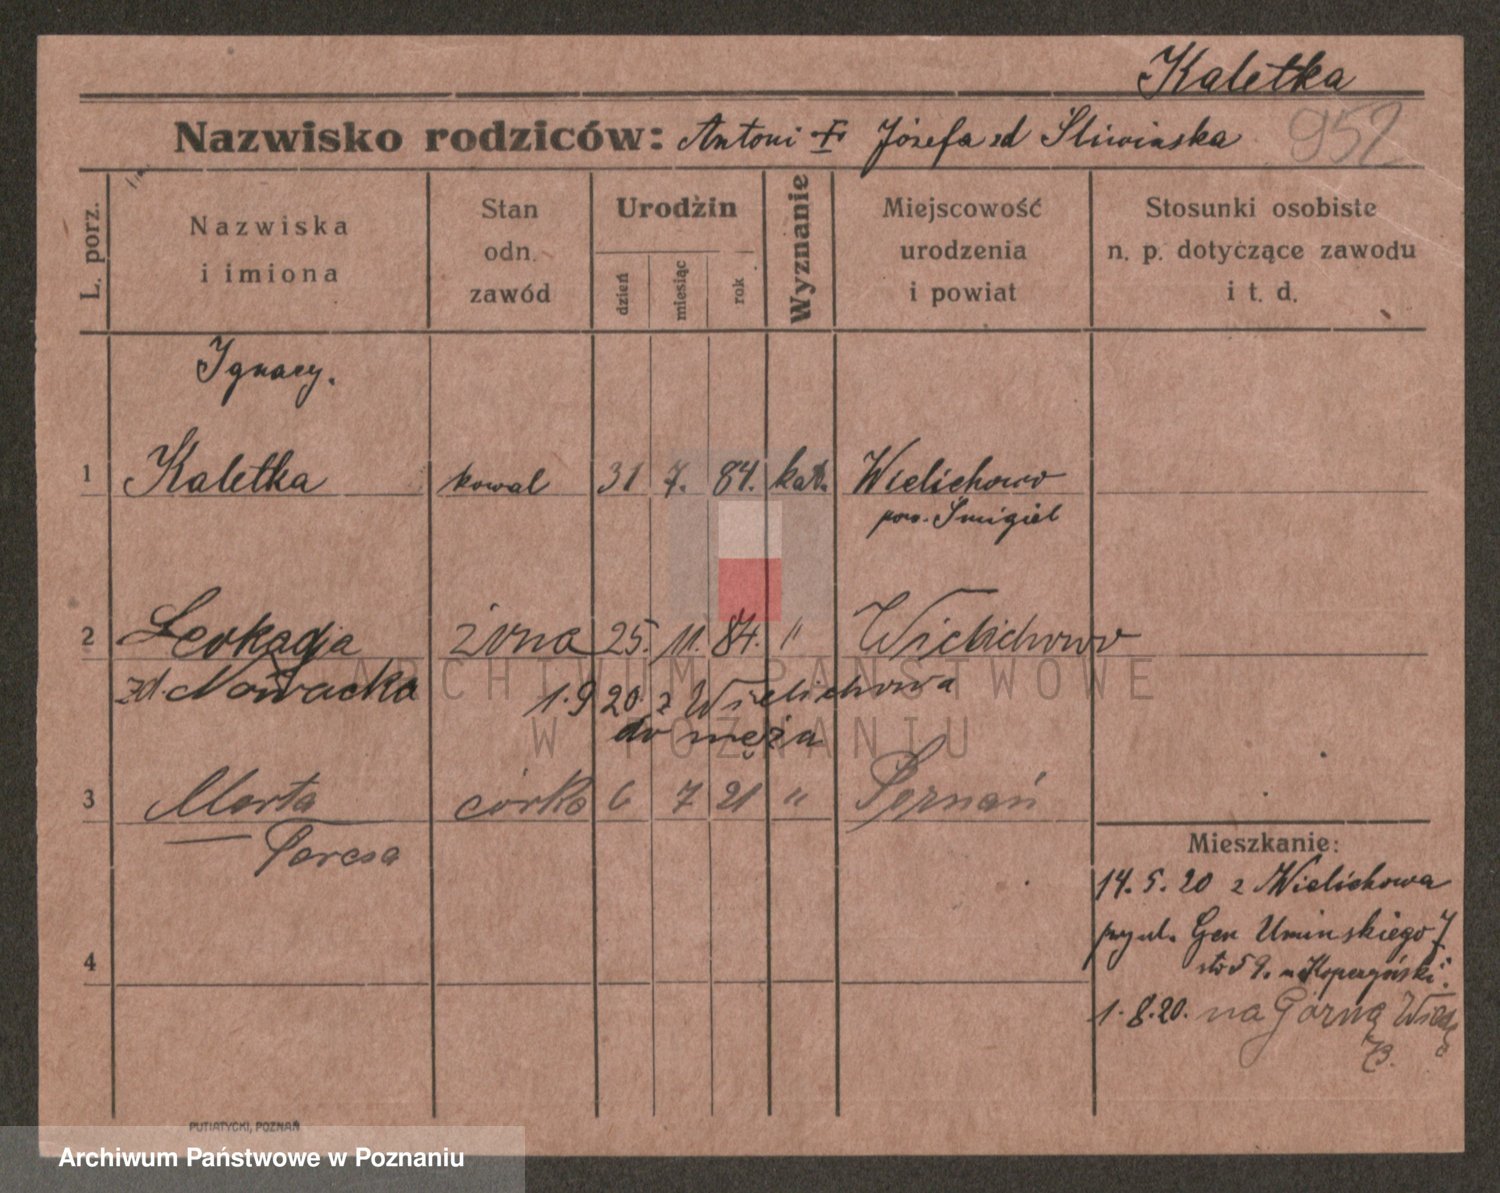 Kaletka
Nazwisko rodziców: Antoni Józefa zd Śliwinska 952
L. porz.
Nazwiska
i imiona
Stan
odn.
zawód
Urodzin
dzień
miesiąc
rok
Wyznanie
Miejscowość
urodzenia
i powiat
Stosunki osobiste
n. p. dotyczące zawodu
i t. d.
Ignacy.
1 Kaletka kowal 31 7. 84. kat. Wielichowo
pow. Śmigiel
2 Leokadja żona 25. 11. 84. " Wielichowo
zd. Nowacka
1.9 20. z Wielichowa
do męża
3 Marta córka 6 7 21 " Poznań
Teresa
4
Mieszkanie:
14. 5. 20 z Wielichowa
Gen Uminskiego 7
1. 8. 20. na Górną Wildę
73.
PUTIATYCKI, POZNAŃ
ARCHIWUM PAŃSTWOWE
W POZNANIU
Archiwum Państwowe w Poznaniu